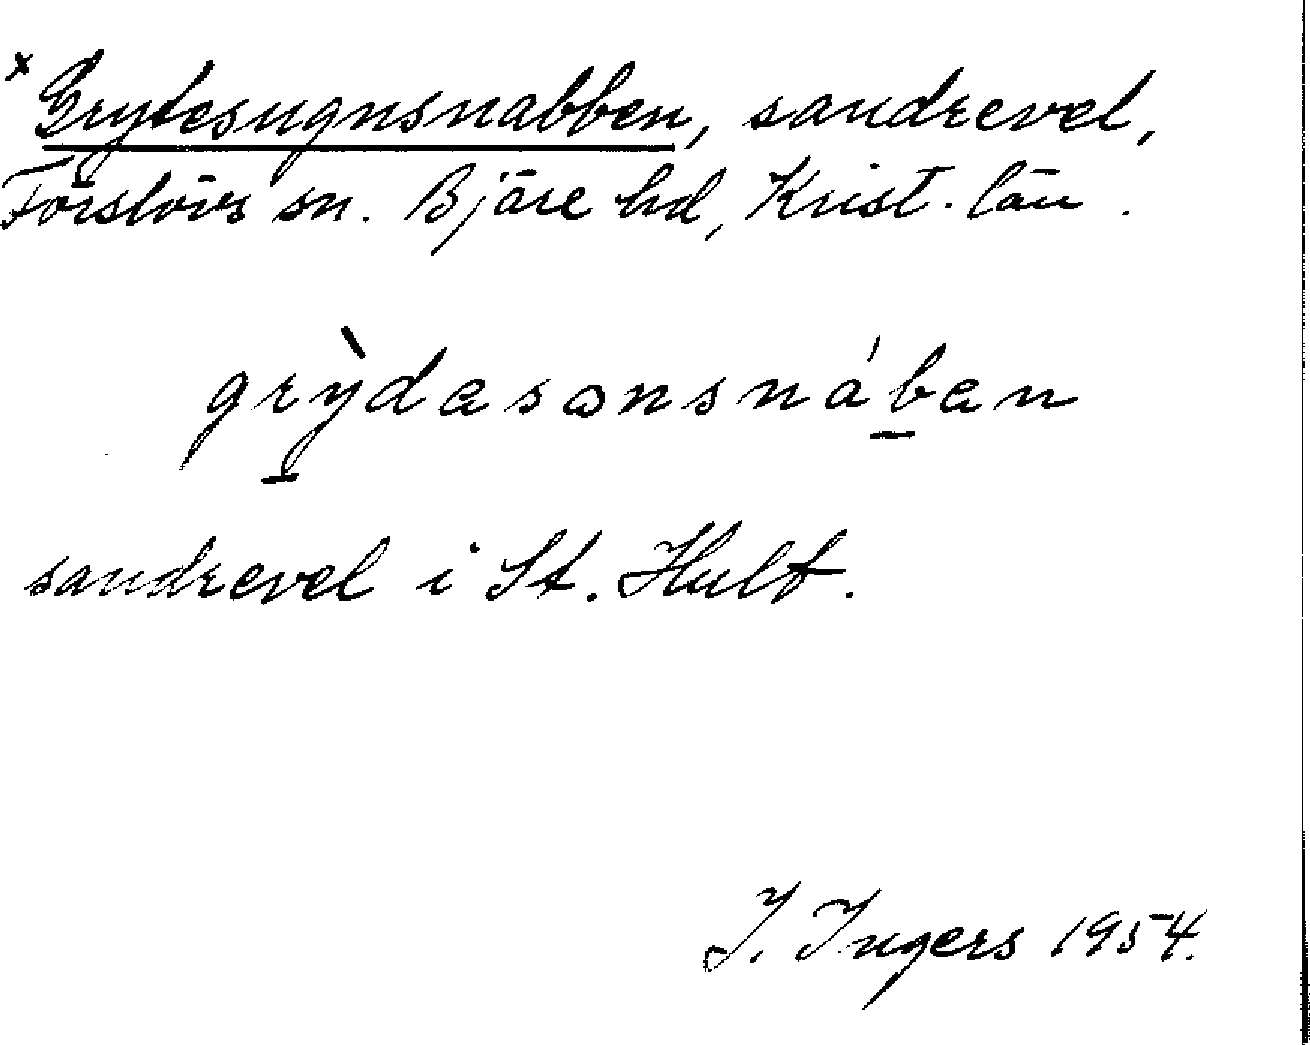 x Grytesugnsnabben, sandrevel,
Förslövs sn. Bjäre hd, Krist. län.
grỳdasonsnában
sandrevel i St. Hult.
I. Ingers 1954.